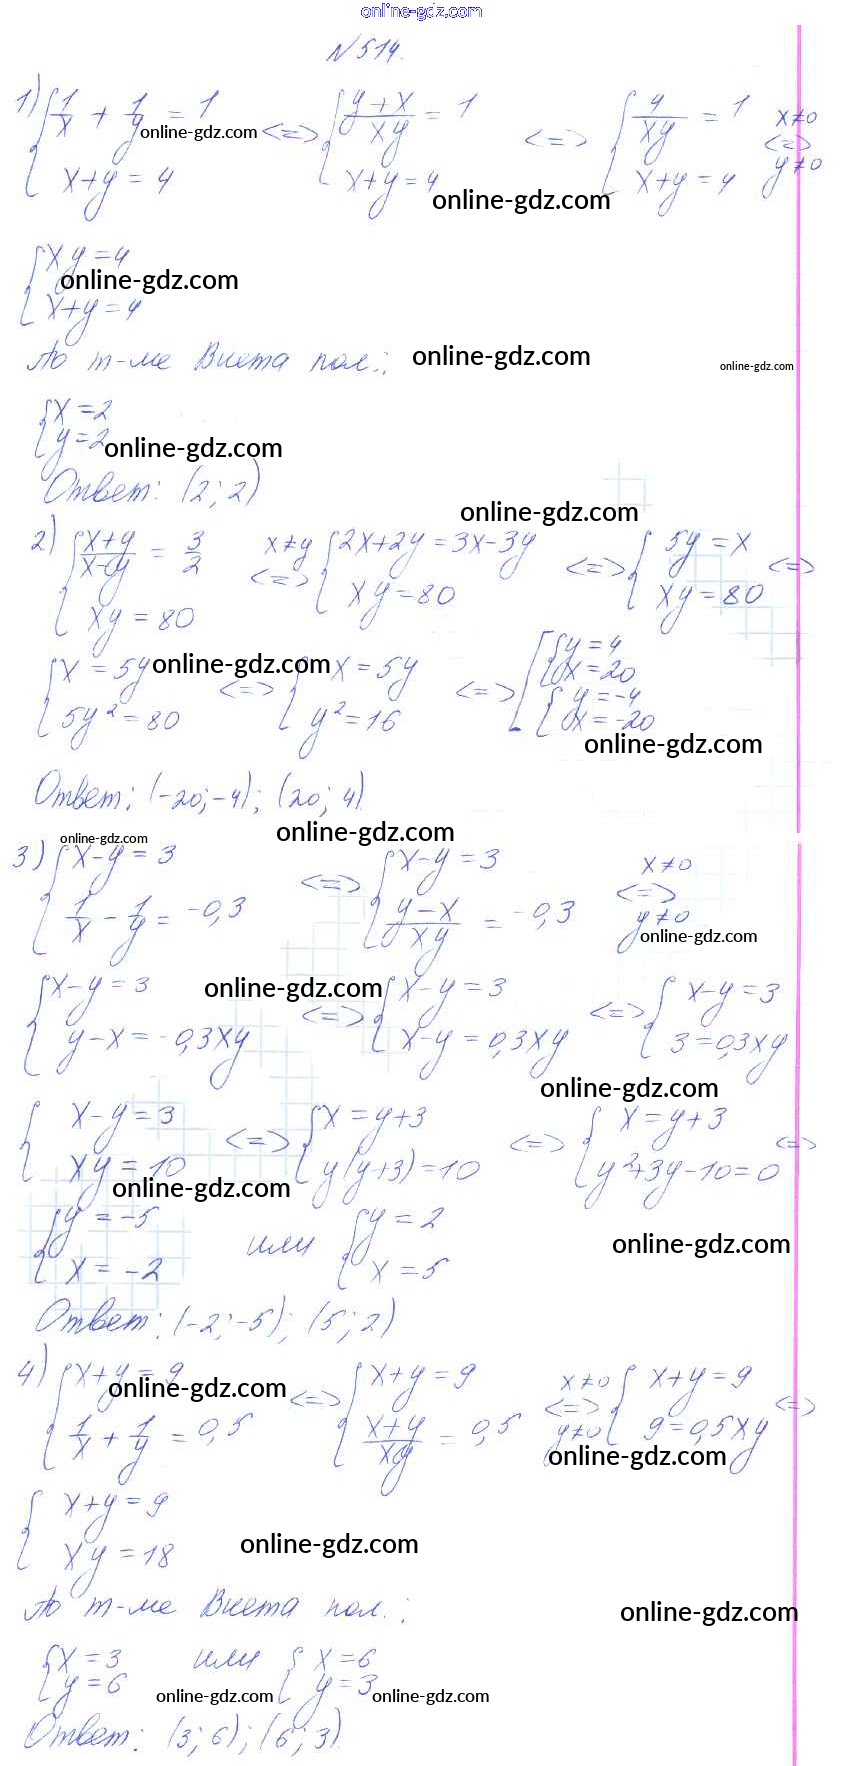 online-gdz.com
N 514.
1) { 1/x + 1/y = 1 <=> { (y+x)/xy = 1 <=> { 4/xy = 1 x≠0 <=> y≠0
online-gdz.com
x+y=4 x+y=4 x+y=4
online-gdz.com
{ xy=4
online-gdz.com
x+y=4
По т-ме Виета пол.: online-gdz.com online-gdz.com
{ x=2
y=2 online-gdz.com
Ответ: (2; 2)
online-gdz.com
2) { (x+y)/(x-y) = 3/2 x≠y <=> { 2x+2y=3x-3y <=> { 5y=x <=>
xy=80 xy=80 xy=80
{ x=5y online-gdz.com <=> { x=5y <=> [ { y=4 x=20
5y²=80 y²=16 { y=-4 x=-20
online-gdz.com
Ответ: (-20;-4); (20; 4).
online-gdz.com online-gdz.com
3) { x-y=3 <=> { x-y=3 x≠0 <=> y≠0
1/x - 1/y = -0,3 (y-x)/xy = -0,3
online-gdz.com
{ x-y=3 online-gdz.com <=> { x-y=3 <=> { x-y=3
y-x=-0,3xy x-y=0,3xy 3=0,3xy
online-gdz.com
{ x-y=3 <=> { x=y+3 <=> { x=y+3 <=>
xy=10 y(y+3)=10 y²+3y-10=0
online-gdz.com
{ y=-5 или { y=2 online-gdz.com
x=-2 x=5
Ответ: (-2;-5); (5; 2)
4) { x+y=9 <=> { x+y=9 x≠0 <=> y≠0 { x+y=9 <=>
online-gdz.com
1/x + 1/y = 0,5 (x+y)/xy = 0,5 9=0,5xy
online-gdz.com
{ x+y=9
xy=18 online-gdz.com
По т-ме Виета пол.: online-gdz.com
{ x=3 или { x=6
y=6 online-gdz.com y=3 online-gdz.com
Ответ: (3; 6); (6; 3).